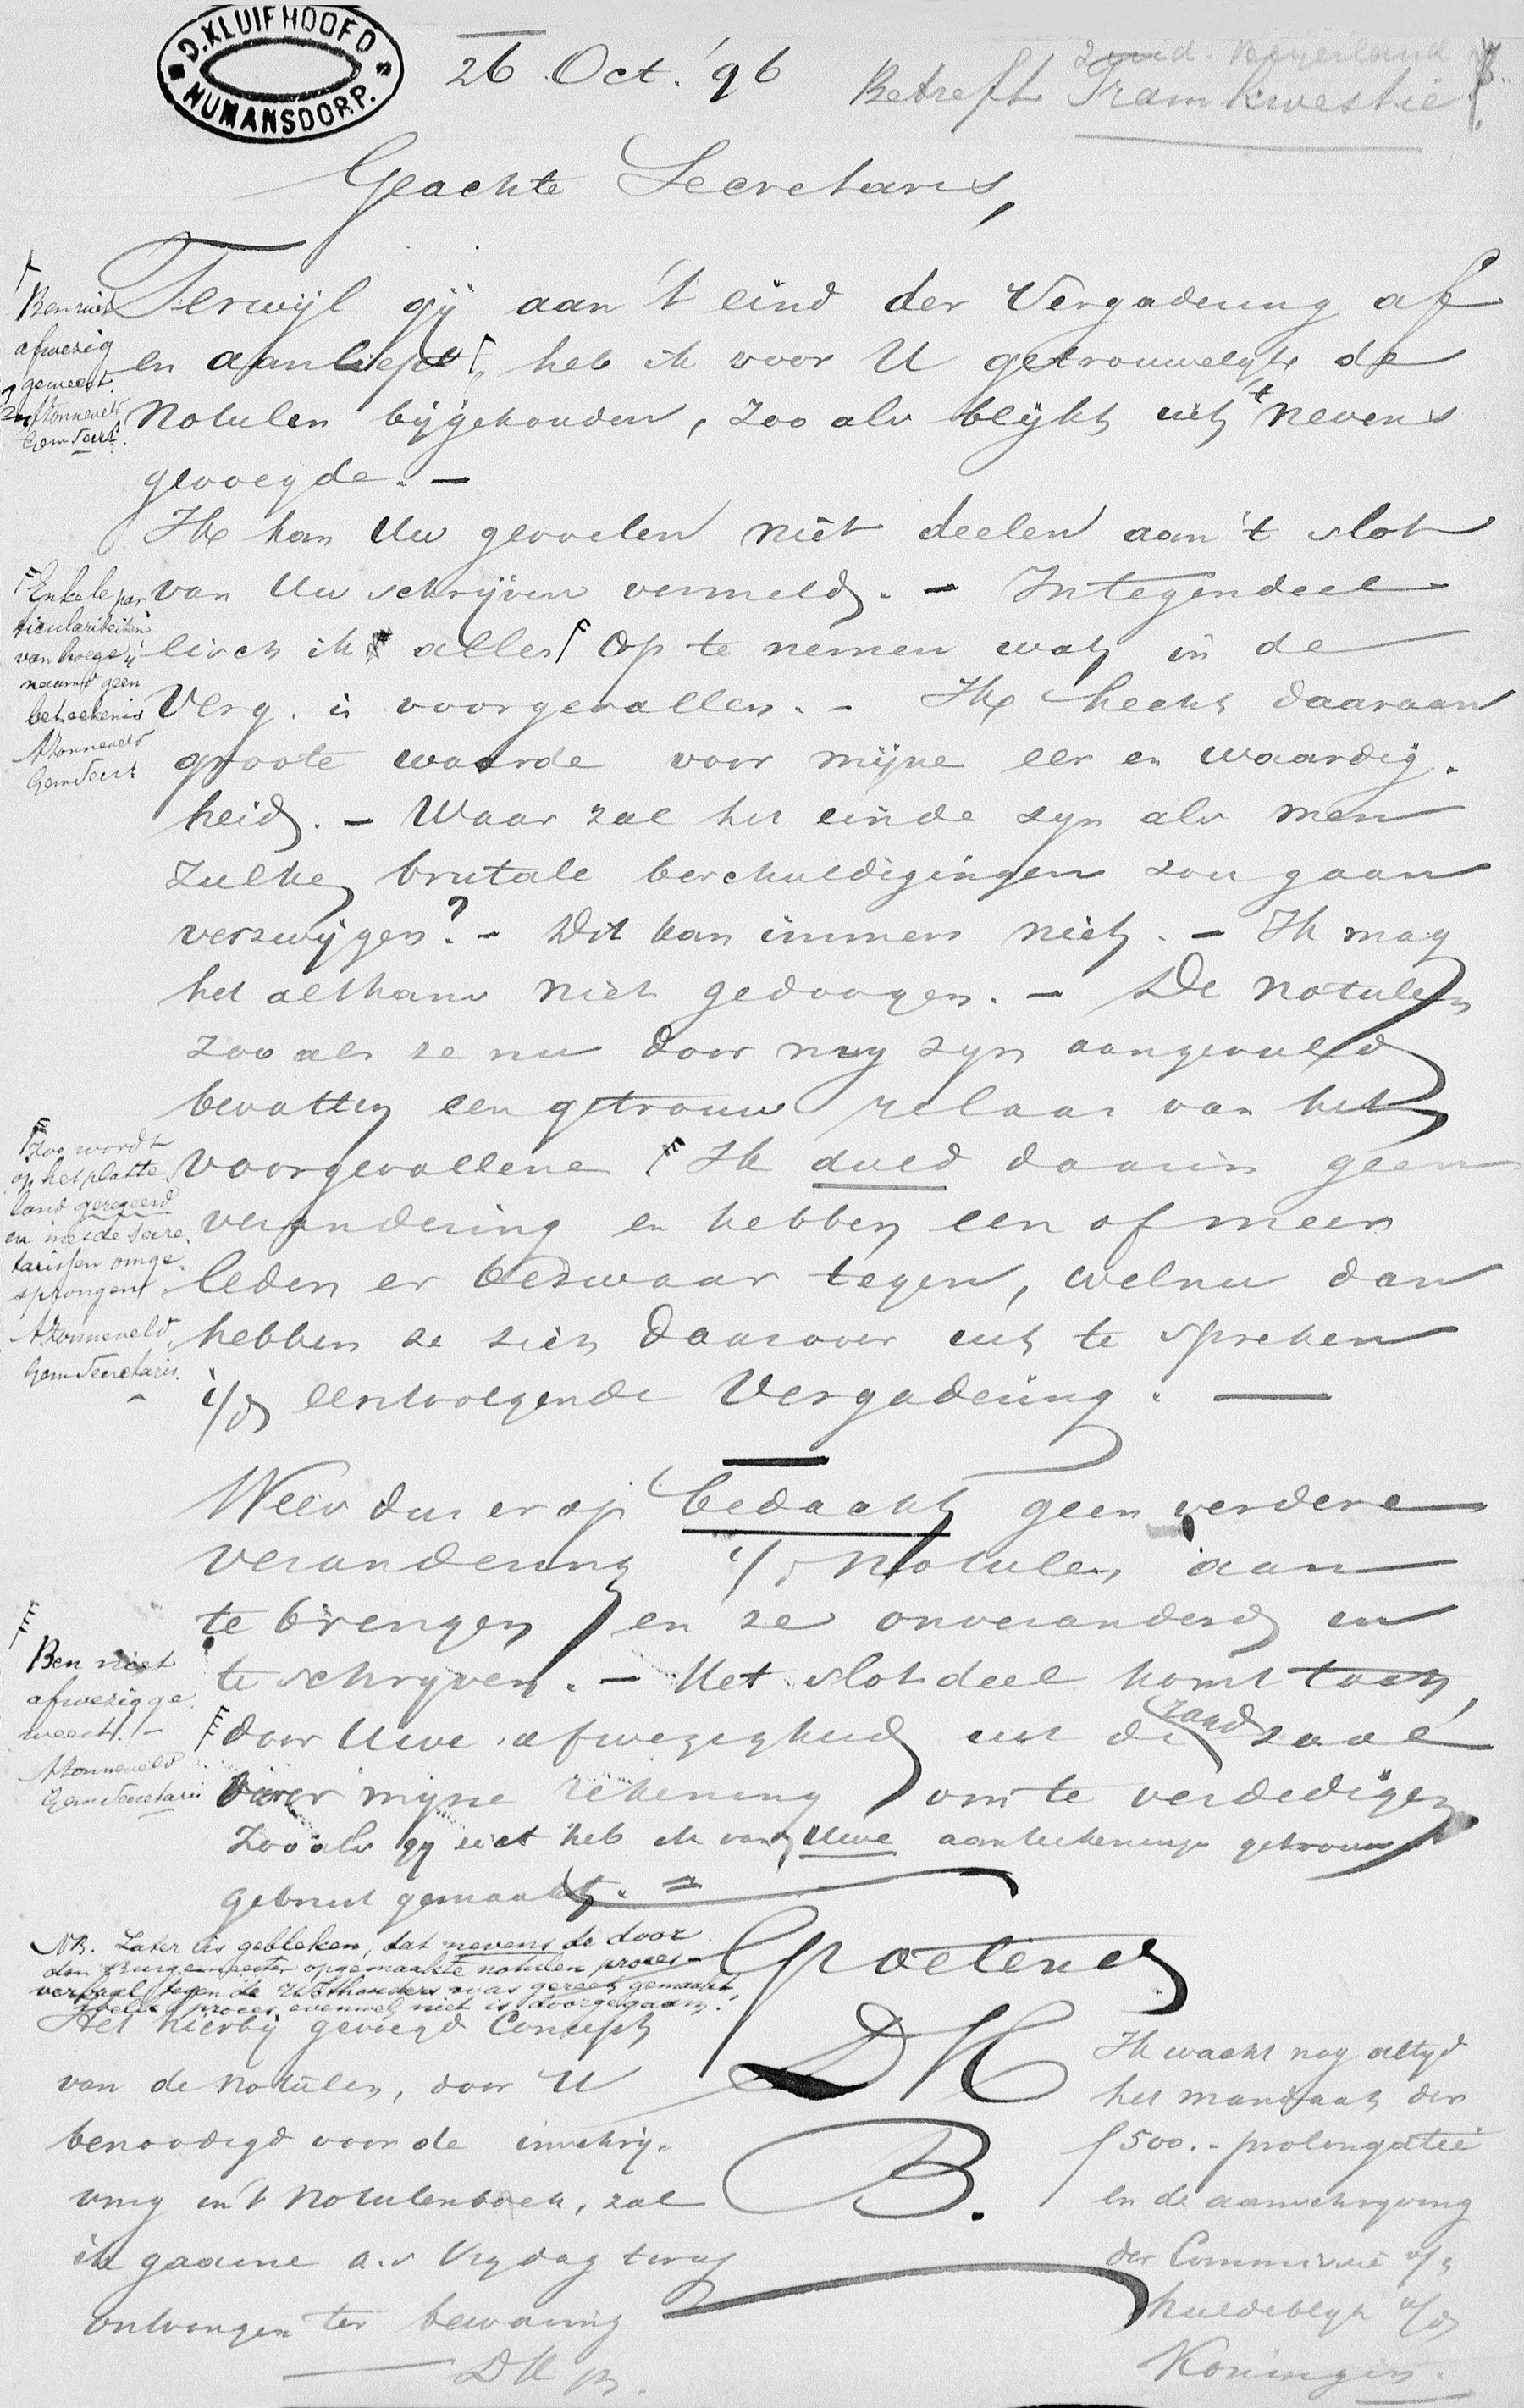 D. KLUIFHOOFD
NUMANSDORP.
26 Oct. '96
Zuid-Beijerland
Betreft Tramkwestie
Geachte Secretaris,
Terwijl gij aan 't eind der Vergadering af
en aanliept heb ik voor U getrouwelijk de
Notulen bijgehouden, zooals blijkt uit 't nevens
gevoegde. —
Ik kan Uw gevoelen niet deelen aan 't slot
van Uw schrijven vermeld. — Integendeel
eisch ik alles op te nemen wat in de
Verg. is voorgevallen. — Ik hecht daaraan
groote waarde voor mijne eer en waardig-
heid. — Waar zal het einde zyn als men
zulke brutale beschuldigingen zou gaan
verzwijgen? — Dit kan immers niet. — Ik mag
het althans niet gedoogen. — De notulen
zooals ze nu door my zyn aangevuld
bevatten een getrouw relaas van het
voorgevallene Ik duld daarin geen
verandering en hebben een of meer
leden er bezwaar tegen, welnu dan
hebben ze zich daarover uit te spreken
i/d eerstvolgende Vergadering. —
Wees dus er op bedacht geen verdere
verandering i/d Notulen aan
te brengen en ze onveranderd in
te schryven. — Het slotdeel komt toch,
door Uwe afwezigheid uit de raadzaal
voor mijne rekening om te verdedigen
Zooals gy ziet heb ik van Uwe aanteekeninge getrouw
gebruik gemaakt. =
Groetend
DK
B.
Ben niet
afwezig
geweest.
AZonneveld
GemSecrt.
Enkele par
ticulariteiten
van hoege
naamd geen
beteekenis
AZonneveld
GemSecrt
Zoo wordt
op het platte
land geregeerd
en met de secre-
tarissen omge-
sprongen!
AZonneveld,
GemSecretaris.
Ben niet
afwezig ge
weest. —
AZonneveld
GemSecretaris
NB. Later is gebleken, dat nevens de door
den Burgemeester opgemaakte notulen proces-
verbaal tegen de Wethouders was gereed gemaakt,
welk proces evenwel niet is doorgegaan.!
Het hierby gevoegd Concept
van de notulen, door U
benoodigd voor de inschrij-
ving in 't Notulenboek, zal
ik gaarne a.s Vrydag terug
ontvangen ter bewaring
DK B.
Ik wacht nog altyd
het mandaat der
f 500.- prolongatie
en de aanschryving
der Commissie v/h
huldeblyk a/d
Koningin.